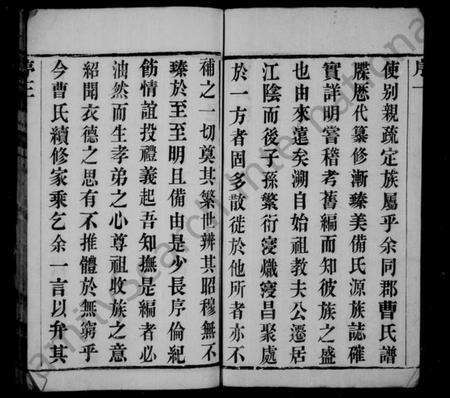 使別親疏定族屬乎余同郡曹氏譜
牒歷代纂修漸臻美備氏源族誌確
實詳明嘗稽考舊編而知彼族之盛
也由來遠矣溯自始祖教夫公遷居
江陰而後子孫繁衍寖熾寖昌聚處
於一方者固多散徙於他所者亦不
補之一切奠其繫世辨其昭穆無不
臻於至至明且備由是少長序倫紀
飭情誼投禮義起吾知撫是編者必
油然而生孝弟之心尊祖收族之意
紹聞衣德之思有不推體於無窮乎
今曹氏續修家乘乞余一言以弁其
序三
familysearch international